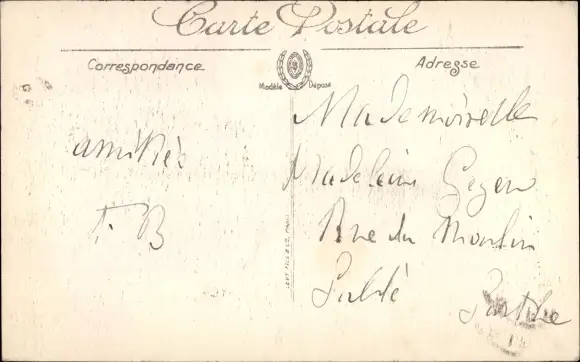 Carte Postale
Correspondance
Adresse
Modèle Déposé
amitiés
F. B
Mademoiselle
Madeleine
Rue du Moulin
Sablé Sarthe